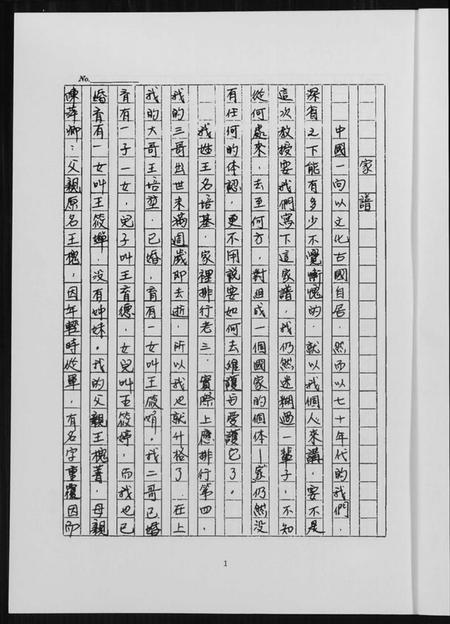 No.
家譜
中國一向以文化古國自居，然而以七十年代的我們，
深省之下能有多少不覺慚愧的，就以我個人來講，要不是
這次教授要我們寫下這家譜，我仍然迷糊過一輩子，不知
從何處來，去至何方，對組成一個國家的個体—家仍然没
有任何的体認，更不用說要如何去維護与愛護它了。
我姓王名培基，家裡排行老三，實際上應排行第四，
我的三哥出世未滿週歲即去逝，所以我也就升格了，在上
我的大哥王培堃，已婚，育有一女叫王筱，我二哥已婚
育有一子一女，兒子叫王育德，女兒叫王筱婷，而我也已
婚育有一女叫王筱嬋，没有姊妹。我的父親王槐菁，母親
陳萍卿：父親原名王槐，因年輕時從軍，有名字重覆因即
1